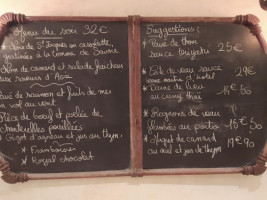 Menu du soir 32€
* Noix de St Jacques en cassolette
gratinée à la tomme de Savoie
* Foie de canard et salade fraîcheur
aux saveurs d'Asie
* Pavé de saumon et fruits de mer
en vol au vent
* Pièce de bœuf et poêlée de
chanterelles persillées
* Gigot d'agneau et jus au thym
* Framboisier
* Royal chocolat
Suggestions:
* Pavé de thon
sauce 25€
* Tête de veau sauce
maître d'hôtel 29€
* Darne de lieu
au curry thaï 18€50
* Rognons de veau
flambés au porto 18€50
* Magret de canard
au miel et jus de thym 19€90